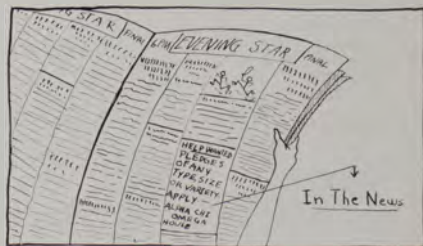 G STAR FINAL 6PM EVENING STAR FINAL
HELP WANTED
PLEDGES
OF ANY
TYPE SIZE
OR VARIETY
APPLY
ALPHA CHI
OMEGA
HOUSE
In The News